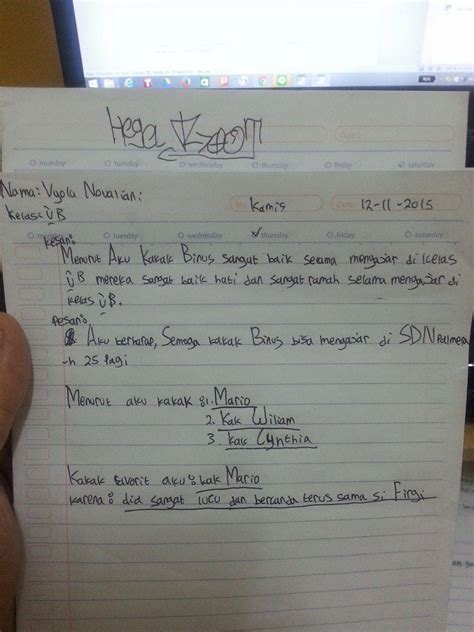 Date:
monday tuesday wednesday thursday friday saturday
Nama: Vyola Novalian:
Kamis
Date: 12-11-2015
Kelas: VB
monday tuesday wednesday thursday friday saturday
Kesan:
Menurut Aku Kakak Binus sangat baik selama mengajar di kelas
VB mereka sangat baik hati dan sangat ramah selama mengajar di
kelas VB.
pesan:
Aku berharap, Semoga kakak Binus bisa mengajar di SDN Palmera
-h 25 lagi
Menurut aku kakak
1. Mario
2. Kak Wiliam
3. Kak Cynthia
Kakak favorit aku: kak Mario
karena: did sangat lucu dan bercanda terus sama si Firgi